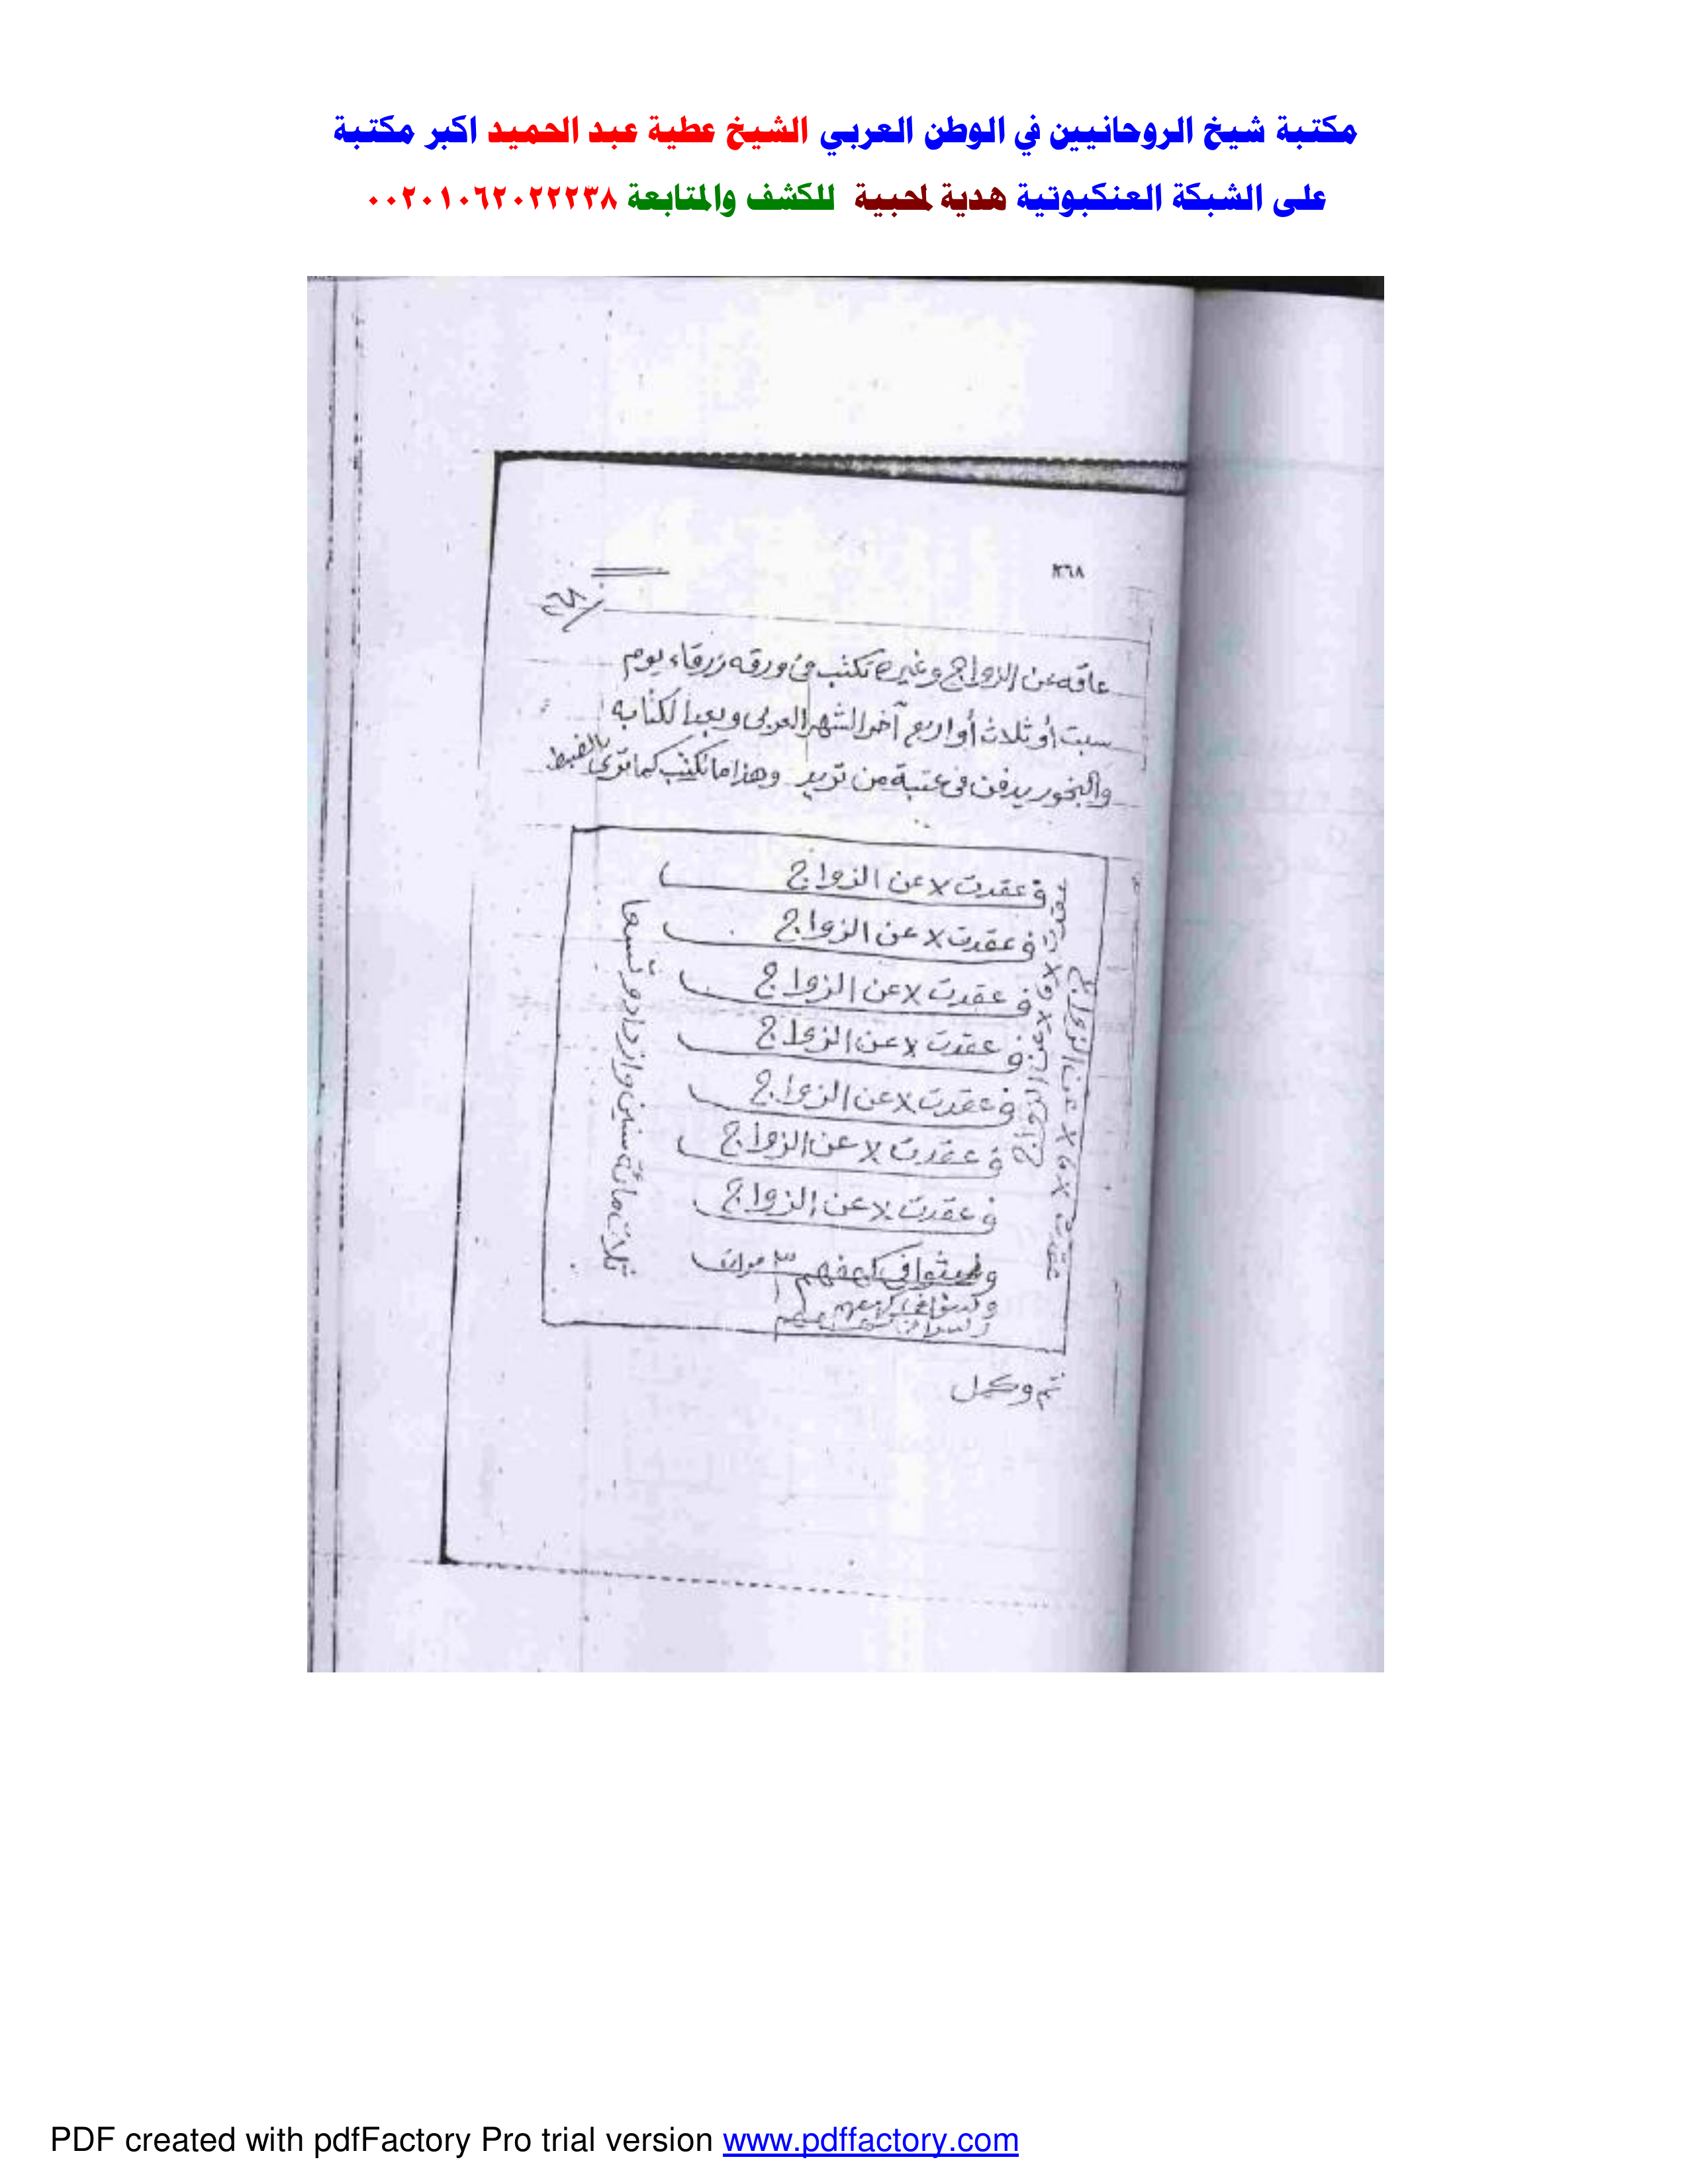 مكتبة شيخ الروحانيين في الوطن العربي الشيخ عطية عبد الحميد اكبر مكتبة
على الشبكة العنكبوتية هدية لمحبية للكشف والمتابعة ٠٠٢٠١٠٦٢٠٢٢٢٣٨
٢٦٨
عاقه عن الزواج وغيره تكتب في ورقه زرقاء يوم
سبت أو ثلاث أو اربع آخر الشهر العربى وبعد الكتابه
والبخور يدفن فى عتبة من تريد وهذا ما تكتب كما ترى بالضبط
ف عقدت لا عن الزواج
ف عقدت لا عن الزواج
ف عقدت لا عن الزواج
ف عقدت لا عن الزواج
ف عقدت لا عن الزواج
ف عقدت لا عن الزواج
ف عقدت لا عن الزواج
ولبثوا في كهفهم ٣ مرات
ثلاث مائة سنين وازدادو تسعا
تم وكمل
PDF created with pdfFactory Pro trial version www.pdffactory.com